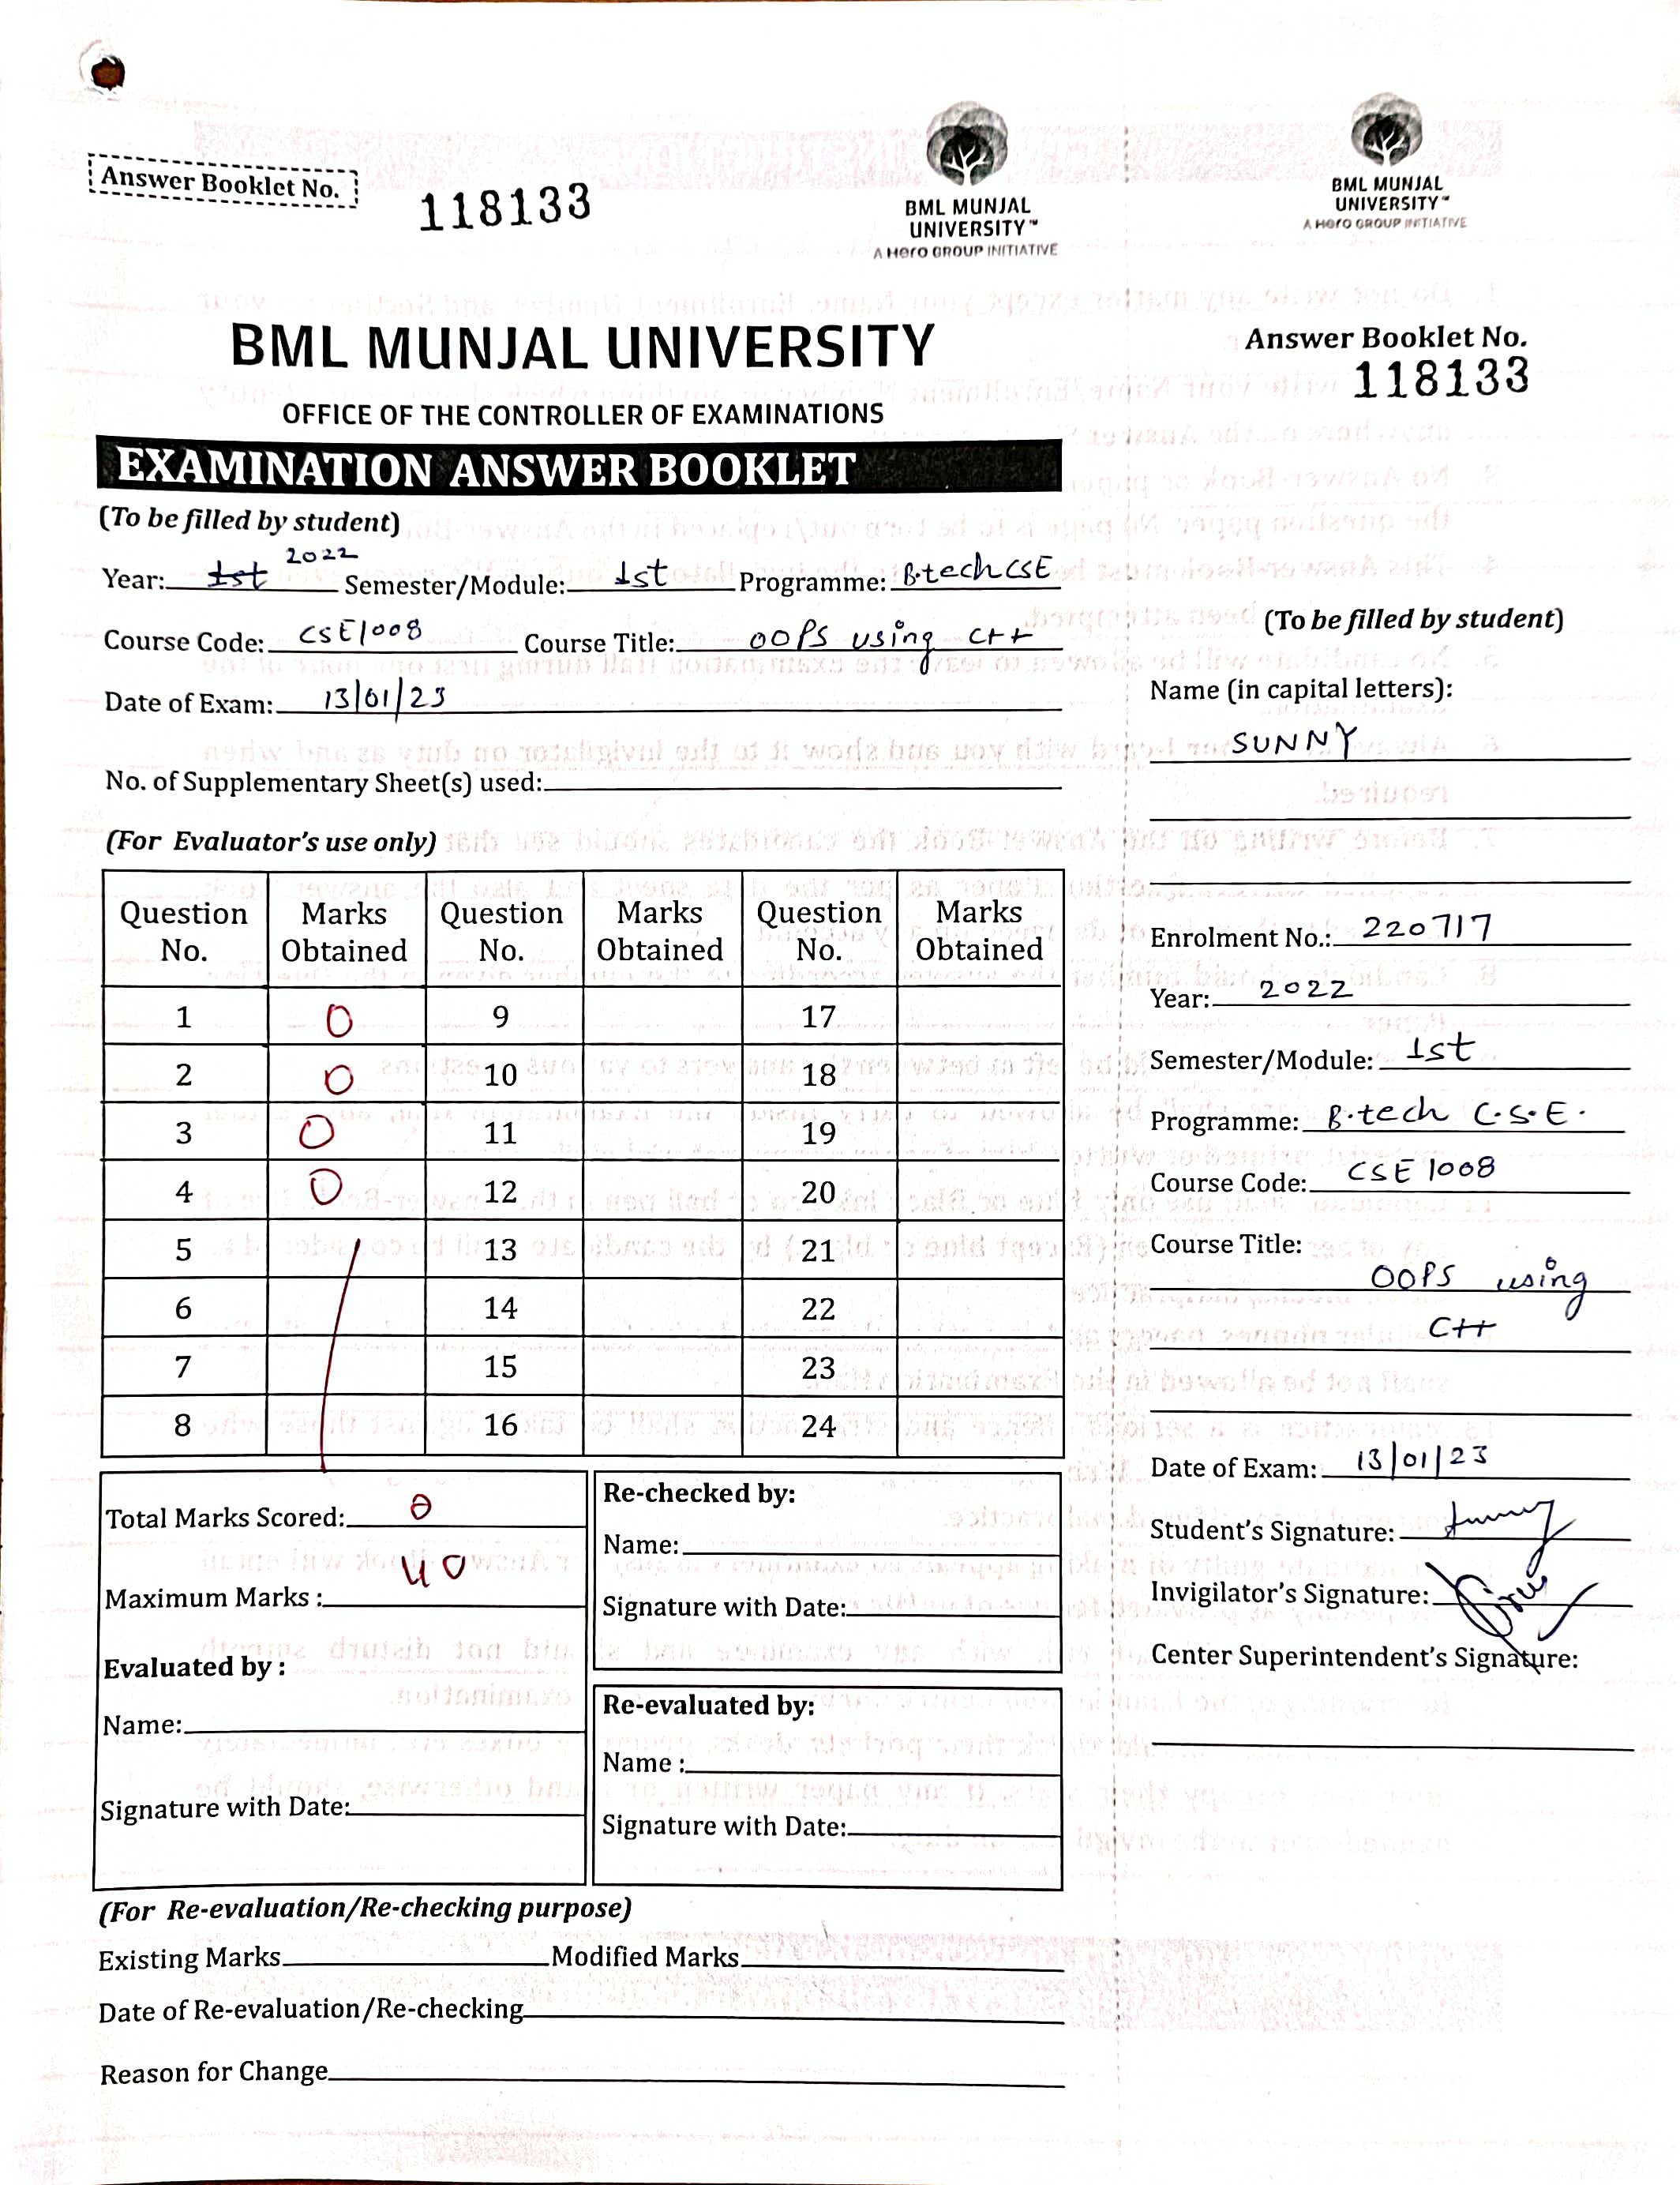 Answer Booklet No.
118133
BML MUNJAL
UNIVERSITY™
A Hero GROUP INITIATIVE
BML MUNJAL UNIVERSITY
OFFICE OF THE CONTROLLER OF EXAMINATIONS
EXAMINATION ANSWER BOOKLET
(To be filled by student)
Year: 1st 2022 Semester/Module: 1st Programme: B.tech CSE
Course Code: CSE1008 Course Title: OOPS using C++
Date of Exam: 13/01/23
No. of Supplementary Sheet(s) used:
(For Evaluator's use only)
Question No. Marks Obtained Question No. Marks Obtained Question No. Marks Obtained
1 0 9 17
2 0 10 18
3 0 11 19
4 0 12 20
5 13 21
6 14 22
7 15 23
8 16 24
Total Marks Scored: 0
Maximum Marks : 40
Evaluated by :
Name:
Signature with Date:
Re-checked by:
Name:
Signature with Date:
Re-evaluated by:
Name :
Signature with Date:
(For Re-evaluation/Re-checking purpose)
Existing Marks Modified Marks
Date of Re-evaluation/Re-checking
Reason for Change
BML MUNJAL
UNIVERSITY™
A Hero GROUP INITIATIVE
Answer Booklet No.
118133
(To be filled by student)
Name (in capital letters):
SUNNY
Enrolment No.: 220717
Year: 2022
Semester/Module: 1st
Programme: B.tech C.S.E.
Course Code: CSE 1008
Course Title:
OOPS using
C++
Date of Exam: 13/01/23
Student's Signature: Sunny
Invigilator's Signature:
Center Superintendent's Signature: